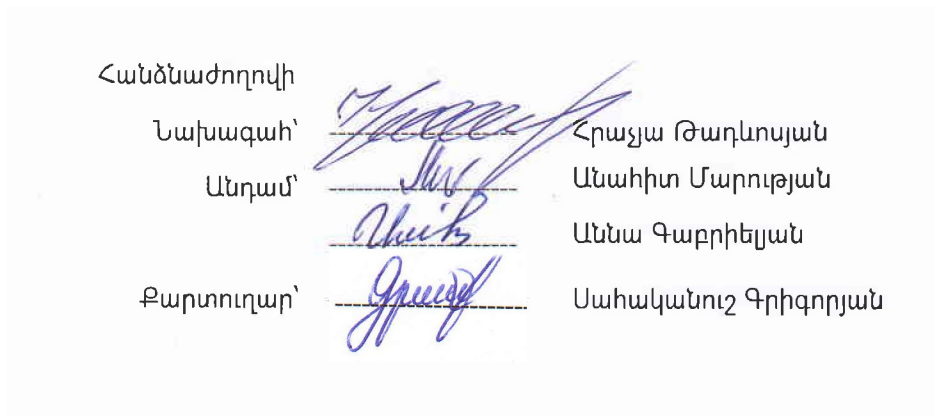 Հանձնաժողովի
Նախագահ՝ Հրաչյա Թադևոսյան
Անդամ՝ Անահիտ Մարության
Աննա Գաբրիելյան
Քարտուղար՝ Սահականուշ Գրիգորյան